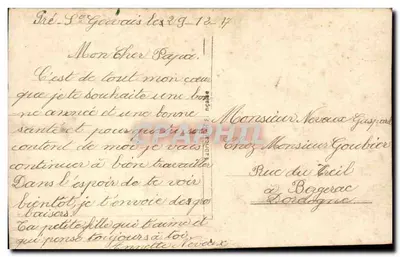 Pré-St Gervais les 29-12-
Mon Cher Papa.
C'est de tout mon cœu
que je te souhaite une bon
ne année et une bonne
santé et pour que tu sois
content de moi je vais
continuer à bien travailler
Dans l'espoir de te voir
bientôt, je t'envoie des
baisers
Ta petite fille qui t'aime et
qui pense toujours à toi.
Monsieur Noveux Gaspard
Chez Monsieur Goubier
Rue du
à Bergerac
Dordogne